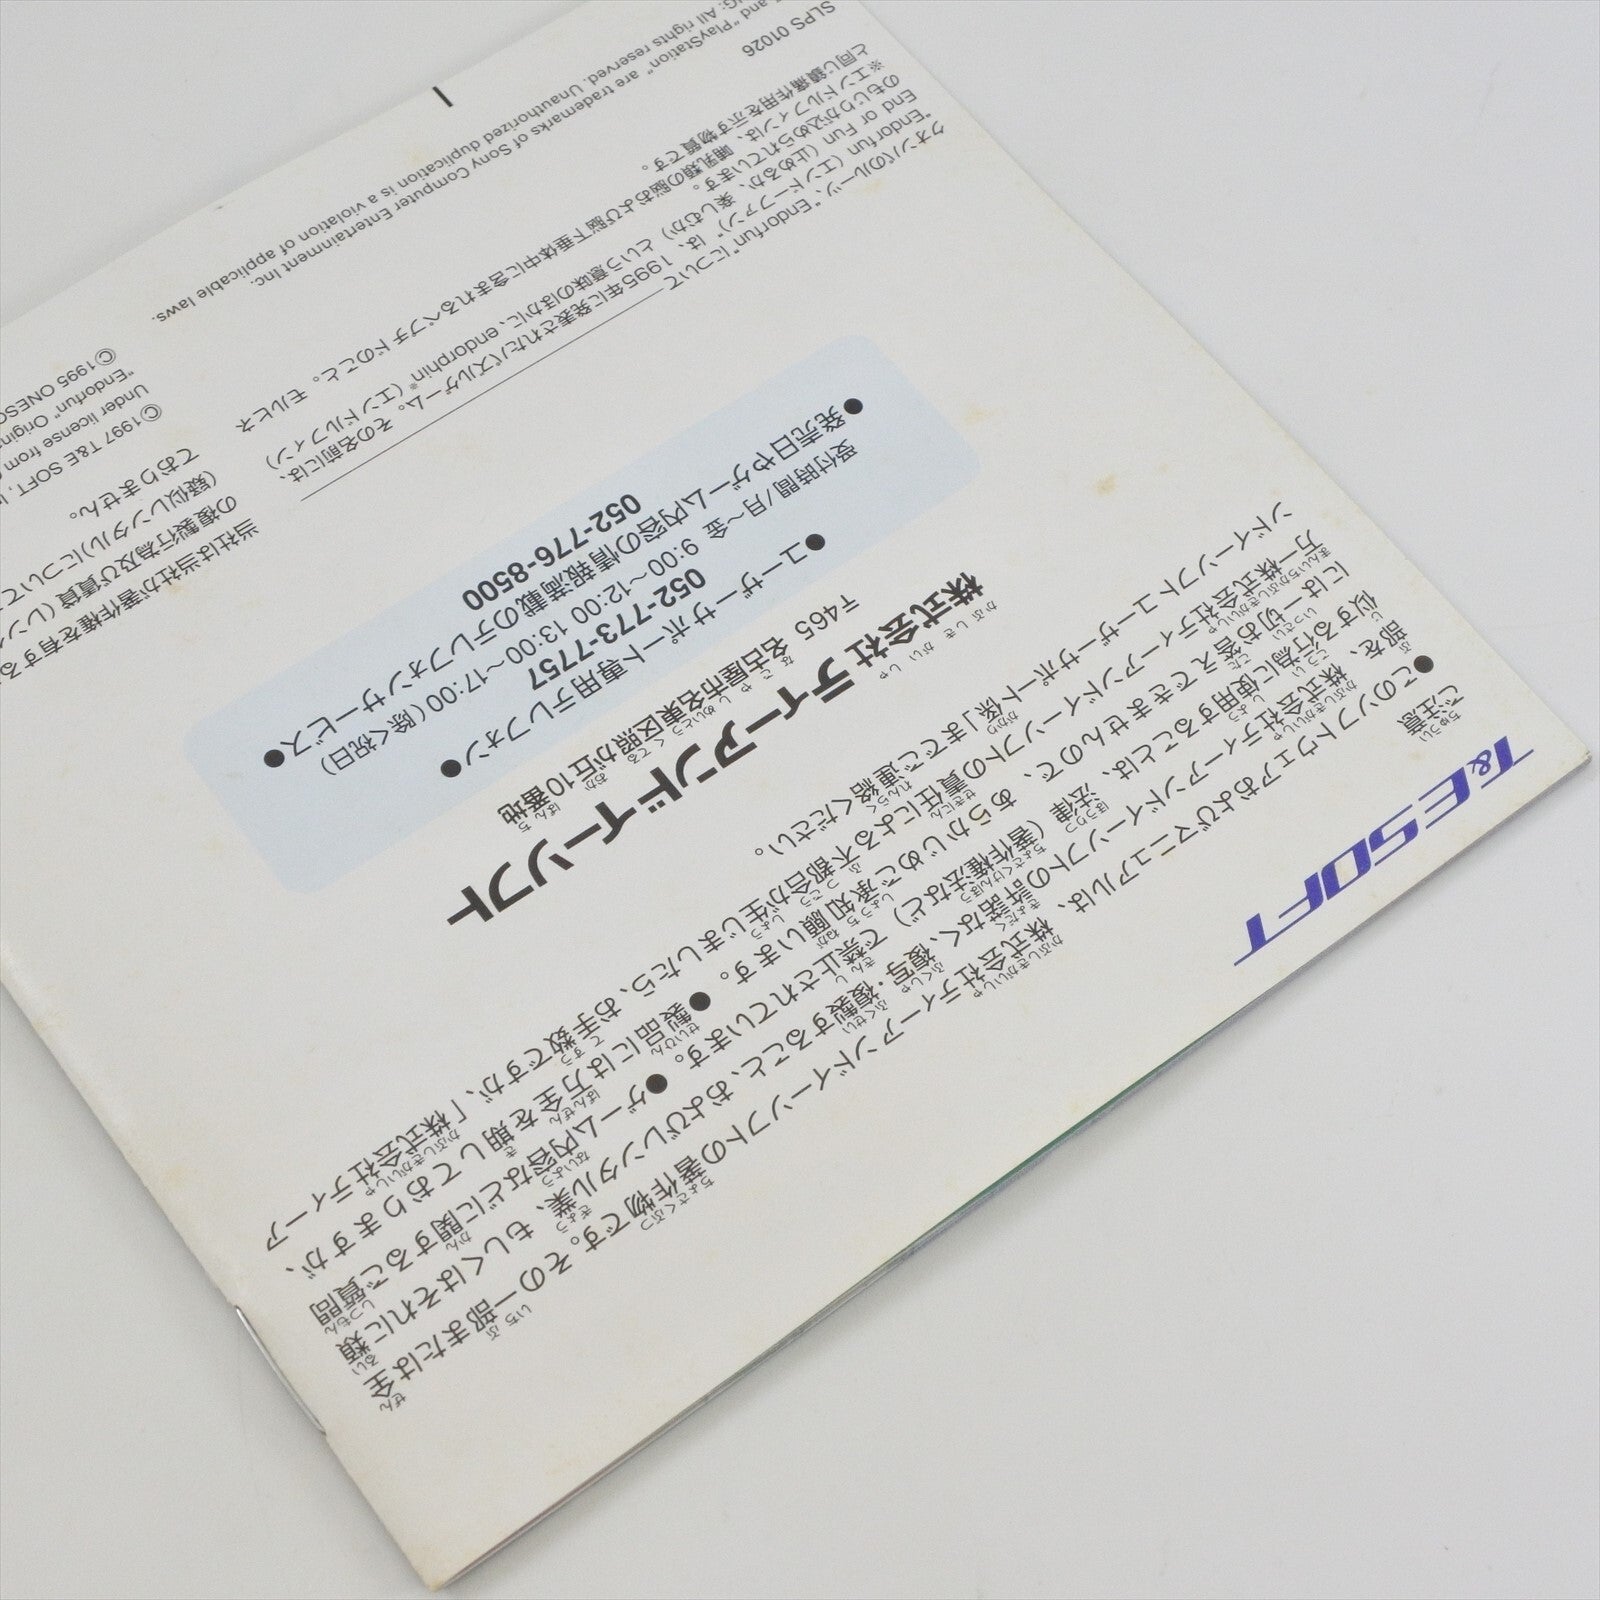 T&E SOFT
ご注意
●このソフトウェアおよびマニュアルは、株式会社ティーアンドイーソフトの著作物です。その一部または全
部を、株式会社ティーアンドイーソフトの許諾なく、複写・複製すること、およびレンタル業、もしくはそれに類
似する行為に使用することは、法律（著作権法など）で禁止されています。●ゲーム内容などに関するご質問
には一切お答えできませんので、あらかじめご承知願います。●製品には万全を期しておりますが、
万一株式会社ティーアンドイーソフトの責任による不都合が生じましたら、お手数ですが、「株式会社ティーア
ンドイーソフトユーザーサポート係」までご連絡ください。
株式会社 ティーアンドイーソフト
〒465 名古屋市名東区照が丘10番地
●ユーザーサポート専用テレフォン●
052-773-7757
受付時間/月〜金 9:00〜12:00 13:00〜17:00（除く祝日）
●発売日やゲーム内容の情報満載のテレフォンサービス●
052-776-8500
"Endorfun"について
クオンパのルーツ、"Endorfun（エンドーファン）"は、1995年に発表されたパズルゲーム。その名前には、
"Endorfun（エンドーファン）
End or Fun（止めるか、楽しむか）という意味のほかに、endorphin※（エンドルフィン）
のもじりが込められています。
※エンドルフィンは、哺乳類の脳および脳下垂体中に含まれるペプチドのこと。モルヒネ
と同じ鎮痛作用を示す物質です。
当社は当社が著作権を有する
の複製行為及び賃貸（レン
（疑似レンタル）について
ておりません。
©1997 T&E SOFT, I
Under license from
"Endorfun" Origina
©1995 ONESO
SLPS 01026
and "PlayStation" are trademarks of Sony Computer Entertainment Inc.
G: All rights reserved. Unauthorized duplication is a violation of applicable laws.